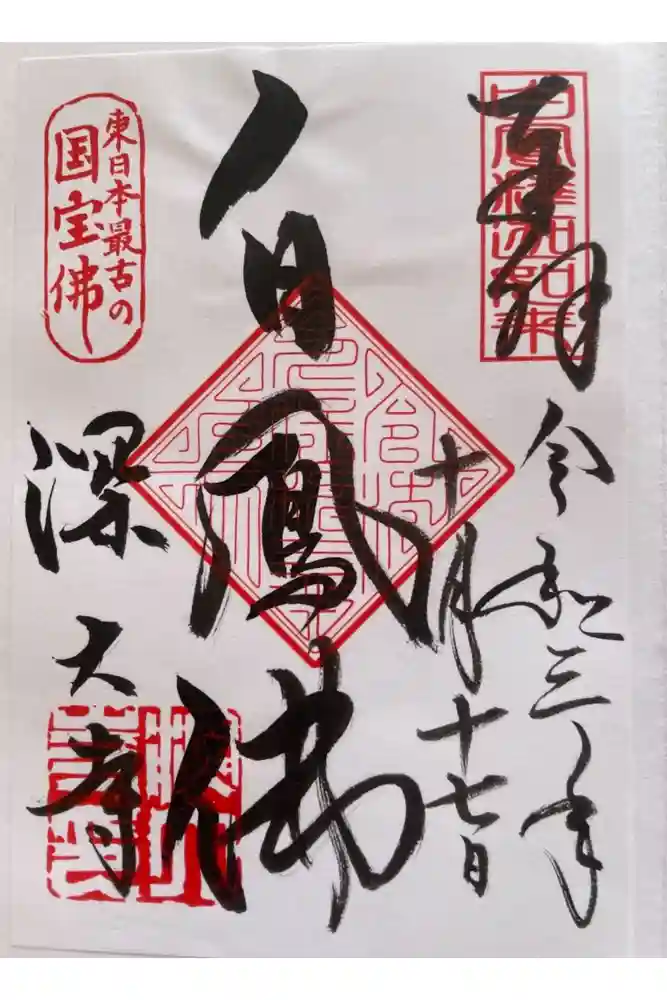 奉拝
令和三年
十月十七日
白鳳佛
東日本最古の
国宝佛
深大寺